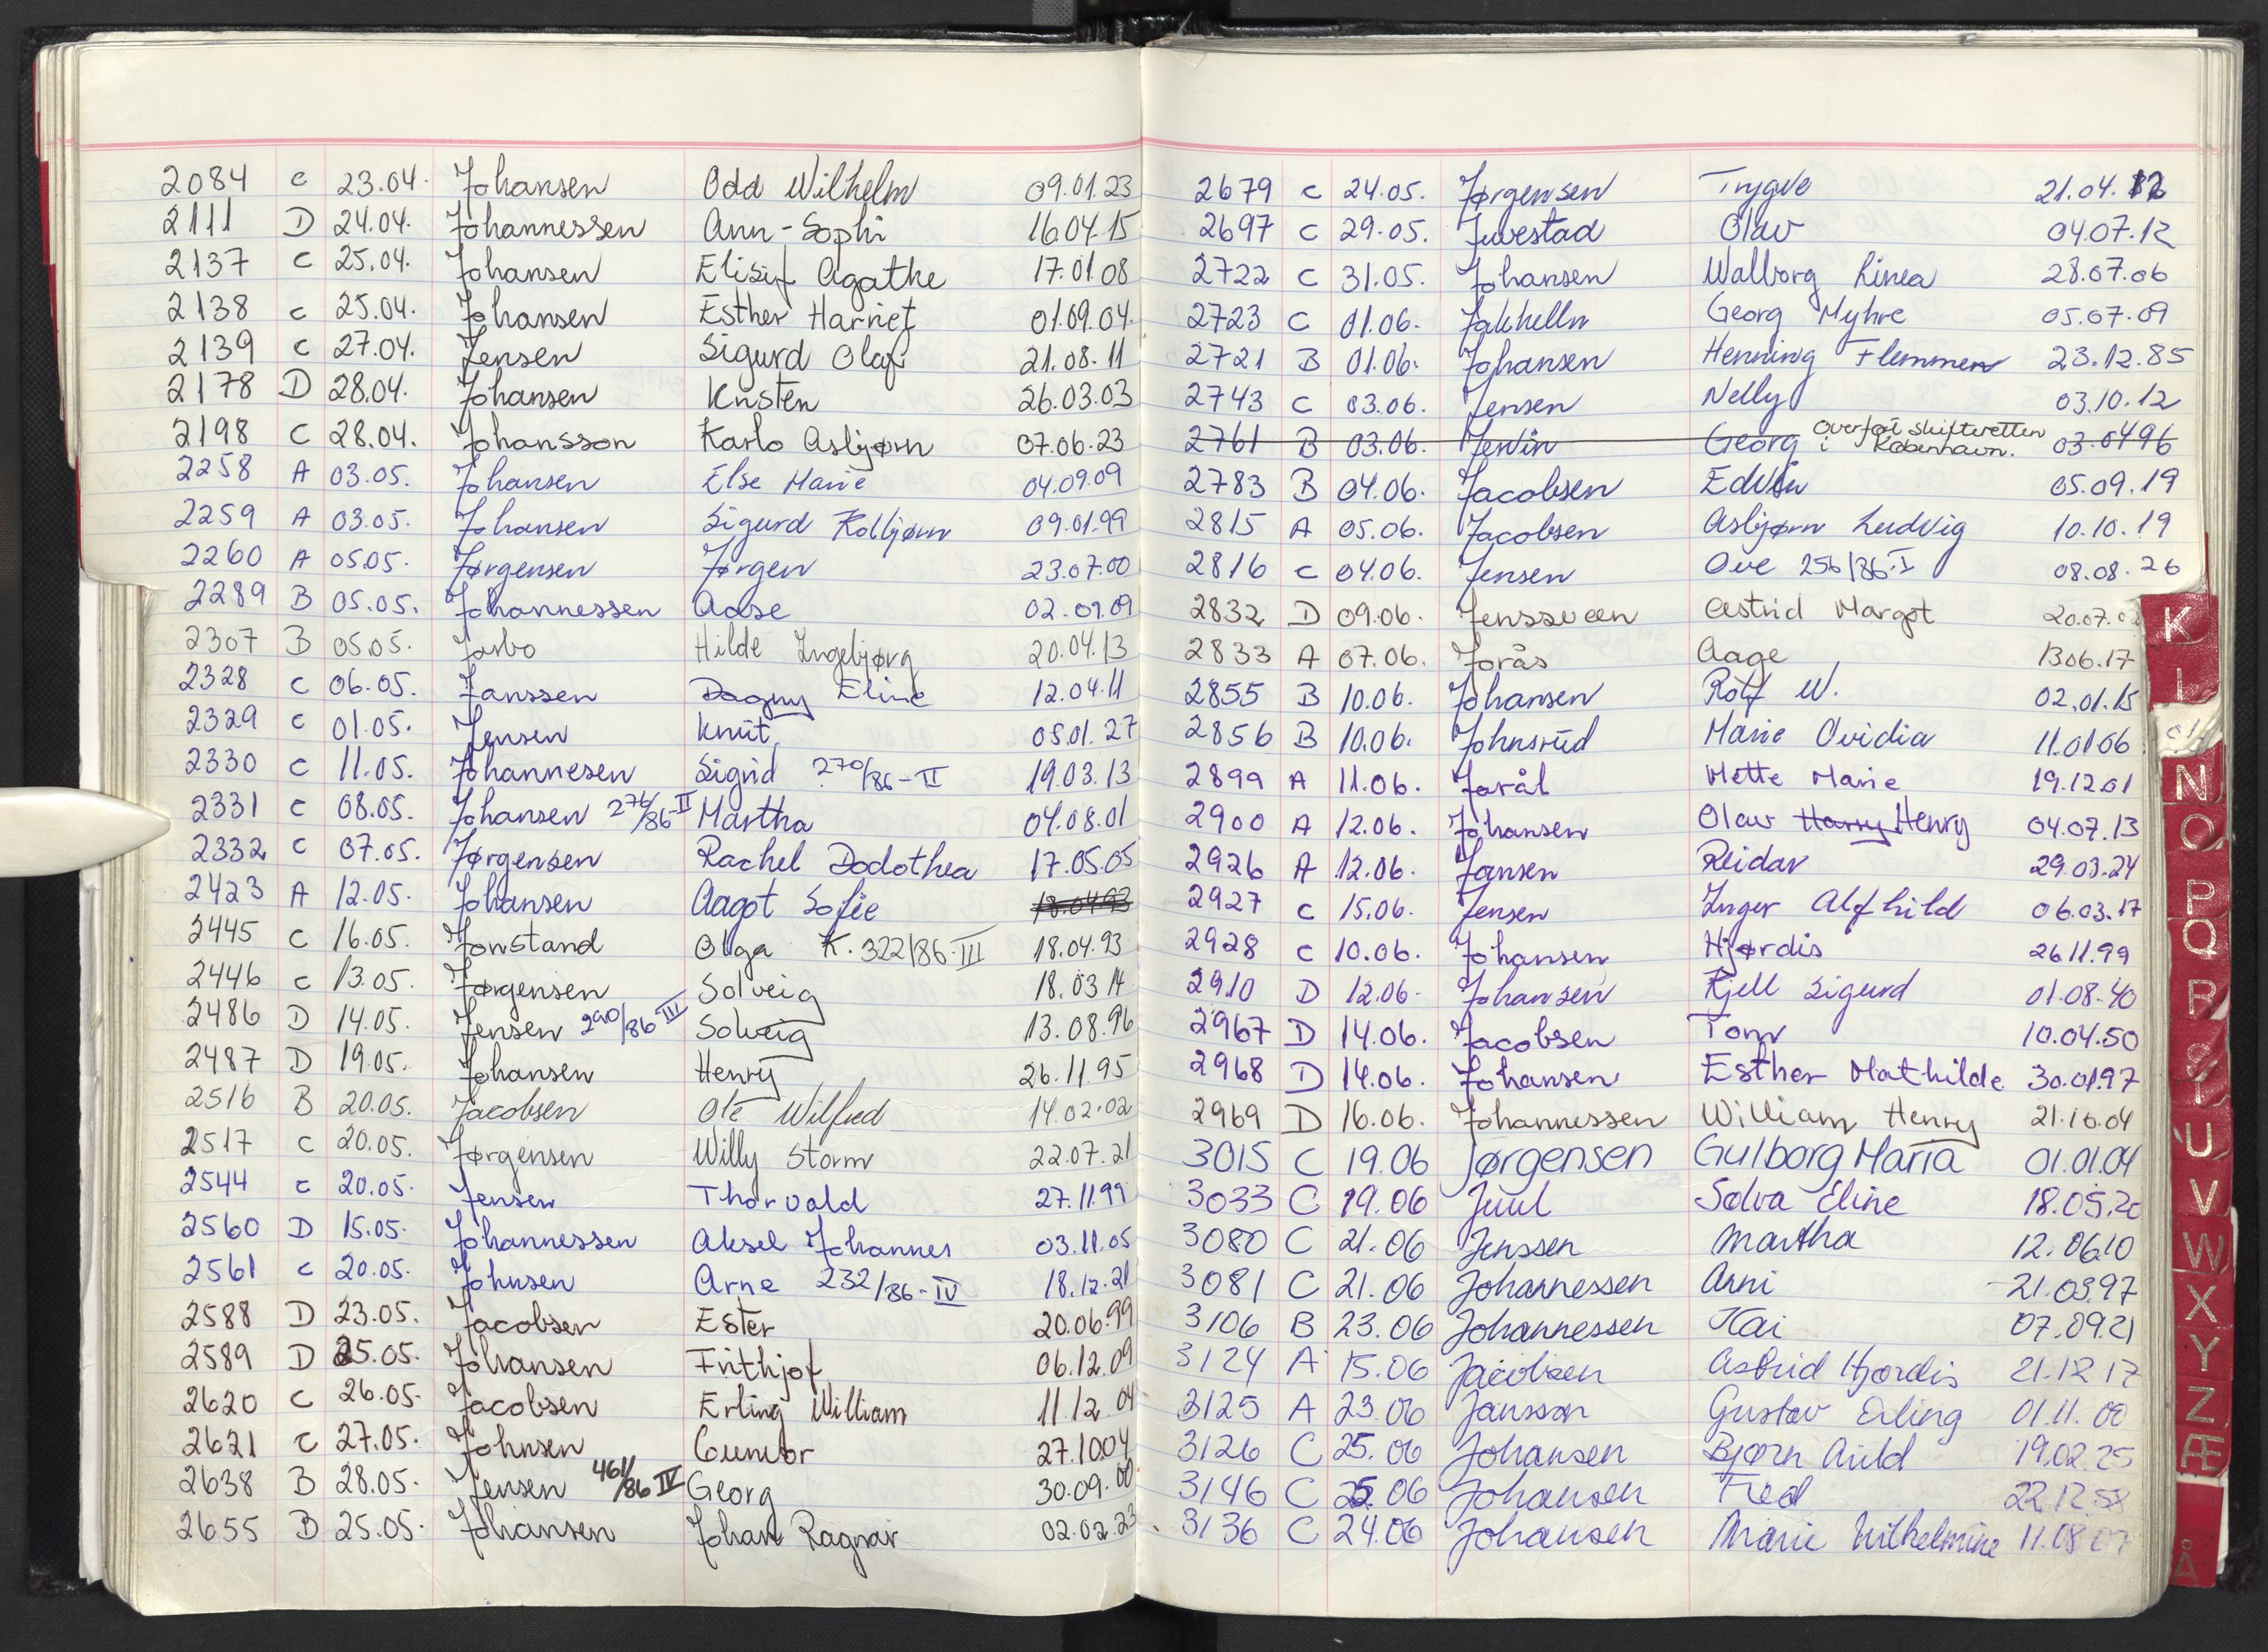 2084 C 23.04. Johansen Odd Wilhelm 09.01.23
2111 D 24.04. Johannessen Ann-Sophi 16.04.15
2137 C 25.04. Johansen Elisif Agathe 17.01.08
2138 C 25.04. Johansen Esther Harriet 01.09.04.
2139 C 27.04. Jensen Sigurd Olaf 21.08.11
2178 D 28.04. Johansen Kristen 26.03.03
2198 C 28.04. Johansson Karlo Asbjørn 07.06.23
2258 A 03.05. Johansen Else Marie 04.09.09
2259 A 03.05. Johansen Sigurd Kolbjørn 09.01.99
2260 A 05.05. Jørgensen Jørgen 23.07.00
2289 B 05.05. Johannessen Aase 02.09.09
2307 B 05.05. Jarbo Hilde Ingebjørg 20.04.13
2328 C 06.05. Janssen Dagny Eline 12.04.11
2329 C 01.05. Jensen Knut 05.01.27
2330 C 11.05. Johannesen Sigrid 270/86-II 19.03.13
2331 C 08.05. Johansen 276/86-II Martha 04.08.01
2332 C 07.05. Jørgensen Rachel Dodothea 17.05.05
2423 A 12.05. Johansen Aagot Sofie 18.04.93
2445 C 16.05. Jonstand Olga K. 322/86-III 18.04.93
2446 C 13.05. Jørgensen Solveig 18.03 14
2486 D 14.05. Jensen 290/86 III Solveig 13.08.96
2487 D 19.05. Johansen Henry 26.11.95
2516 B 20.05. Jacobsen Ole Wilfred 14.02.02
2517 C 20.05. Jørgensen Willy Storm 22.07.21
2544 C 20.05. Jensen Thorvald 27.11.99
2560 D 15.05. Johannessen Aksel Johannes 03.11.05
2561 C 20.05. Johnsen Arne 232/86-IV 18.12.21
2588 D 23.05. Jacobsen Ester 20.06.99
2589 D 25.05. Johansen Frithjof 06.12.09
2620 C 26.05. Jacobsen Erling William 11.12.04
2621 C 27.05. Johnsen Gunvor 27.10.04
2638 B 28.05. Jensen 461/86 IV Georg 30.09.00
2655 B 25.05. Johansen Johan Ragnar 02.02.23
2679 C 24.05. Jørgensen Trygve 21.04.12
2697 C 29.05. Juvestad Olav 04.07.12
2722 C 31.05. Johansen Walborg Linea 28.07.06
2723 C 01.06. Jakhelln Georg Myhre 05.07.09
2721 B 01.06. Johansen Henning Flemmen 23.12.85
2743 C 03.06. Jensen Nelly 03.10.12
2761 B 03.06. Jervin Georg Overført skifteretten i København. 03.04.96
2783 B 04.06. Jacobsen Edvin 05.09.19
2815 A 05.06. Jacobsen Asbjørn Ludvig 10.10.19
2816 C 04.06. Jensen Ove 256/86-I 08.08.26
2832 D 09.06. Jenssveen Astrid Margot 20.07.
2833 A 07.06. Jorås Aage 13.06.17
2855 B 10.06. Johansen Rolf W. 02.01.15
2856 B 10.06. Johnsrud Marie Ovidia 11.01.06
2899 A 11.06. Jorål Mette Marie 19.12.01
2900 A 12.06. Johansen Olav Harry Henry 04.07.13
2926 A 12.06. Jansen Reidar 29.03.24
2927 C 15.06. Jensen Inger Alfhild 06.03.17
2928 C 10.06. Johansen Hjørdis 26.11.99
2910 D 12.06. Johansen Kjell Sigurd 01.08.40
2967 D 14.06. Jacobsen Tom 10.04.50
2968 D 14.06. Johansen Esther Mathilde 30.01.97
2969 D 16.06. Johannessen William Henry 21.10.04
3015 C 19.06 Jørgensen Gulborg Maria 01.01.04
3033 C 19.06 Juul Solva Eline 18.05.20
3080 C 21.06 Jenssen Martha 12.06.10
3081 C 21.06 Johannessen Arni 21.03.97
3106 B 23.06 Johannessen Kai 07.09.21
3124 A 15.06 Jacobsen Astrid Hjørdis 21.12 17
3125 A 23.06 Jansson Gustav Erling 01.11.00
3126 C 25.06 Johansen Bjørn Auld 19.02.25
3146 C 25.06 Johansen Fred 22.12.58
3136 C 24.06 Johansen Marie Wilhelmine 11.08
K
L
N
O
P
Q
R
S
T
U
V
W
X
Y
Z
Æ
Å